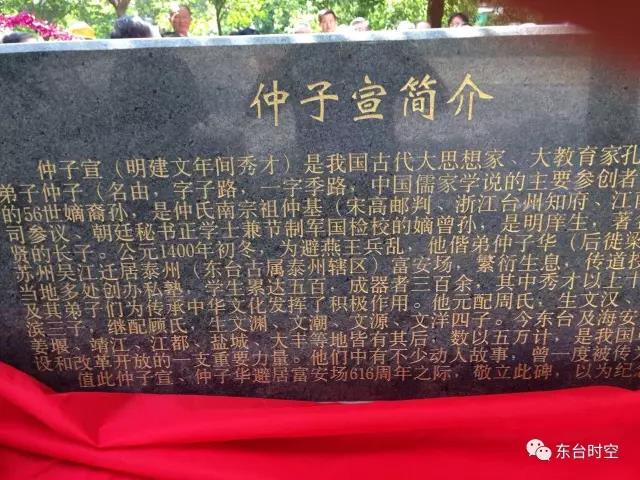 仲子宣简介
仲子宣（明建文年间秀才）是我国古代大思想家、大教育家孔
弟子仲子（名由，字子路，一字季路，中国儒家学说的主要参创者
的56世嫡裔孙，是仲氏南宗祖仲基（宋高邮判、浙江台州知府、江
司参议、朝廷秘书正学士兼节制军国检校的嫡曾孙，是明庠生，著
贤的长子。公元1400年初冬，为避燕王兵乱，他偕弟仲子华（后徙
苏州吴江迁居泰州（东台古属泰州辖区）富安场，繁衍生息，传道授
当地多处创办私塾，学生累达五百，成器者三百余，其中秀才以上十
及其弟子们为传承中华文化发挥了积极作用。他元配周氏，生文汉、
滨三子，继配顾氏，生文渊、文潮、文源、文洋四子。今东台及海安
姜堰、靖江、江都、盐城、大丰等地皆有其后，数以五万计，是我国
设和改革开放的一支重要力量。他们中有不少动人故事，曾一度被传
值此仲子宣、仲子华避居富安场616周年之际，敬立此碑，以为纪念
东台时空